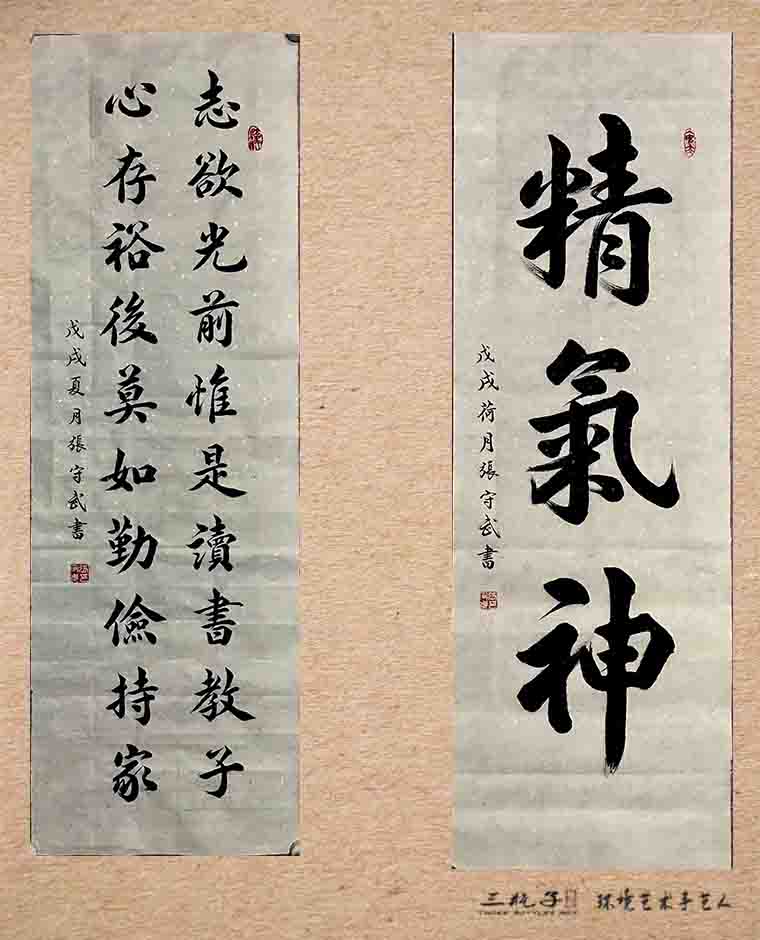 精氣神
戊戌荷月張守武書
志欲光前惟是讀書教子
心存裕後莫如勤儉持家
戊戌夏月張守武書
三瓶子
THREE BOTTLES BOY
环境艺术手艺人